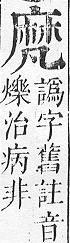 譌字舊註音
爍治病非